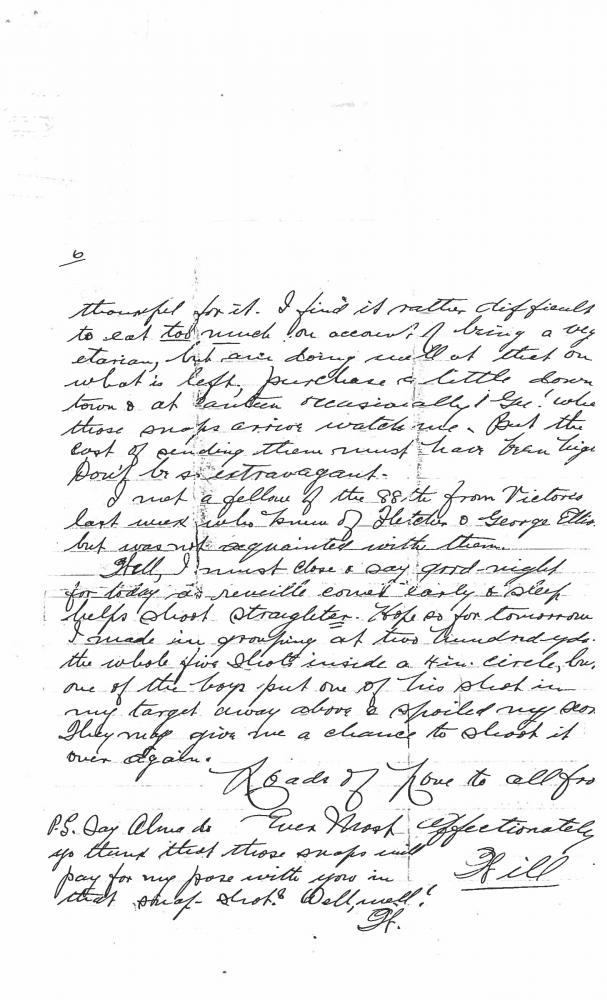 6
thankful for it. I find it rather difficult
to eat too much on account of being a veg
etarian, but am doing well at that on
what is left, purchase a little down
town & at canteen occasionally! Gee! whe
those snaps arrive watch me. But the
cost of sending them must have been hig
Don't be so extravagant.
I met a fellow of the 88th from Victoria
last week who knew of Fletcher & George Ellio
but was not acquainted with them.
Well, I must close & say good-night
for today as reveille comes early & sleep
helps shoot straighter. Hope so for tomorrow
I made in grouping at two hundred yds.
the whole five shots inside a 4 in. circle, but
one of the boys put one of his shot in
my target away above & spoiled my scor
They may give me a chance to shoot it
over again.
Loads of Love to all fro
Ever Most Affectionately
Will
P.S. Say Alma do
yo think that those snaps will
pay for my pose with you in
that snap-shot? Well, well!
W.